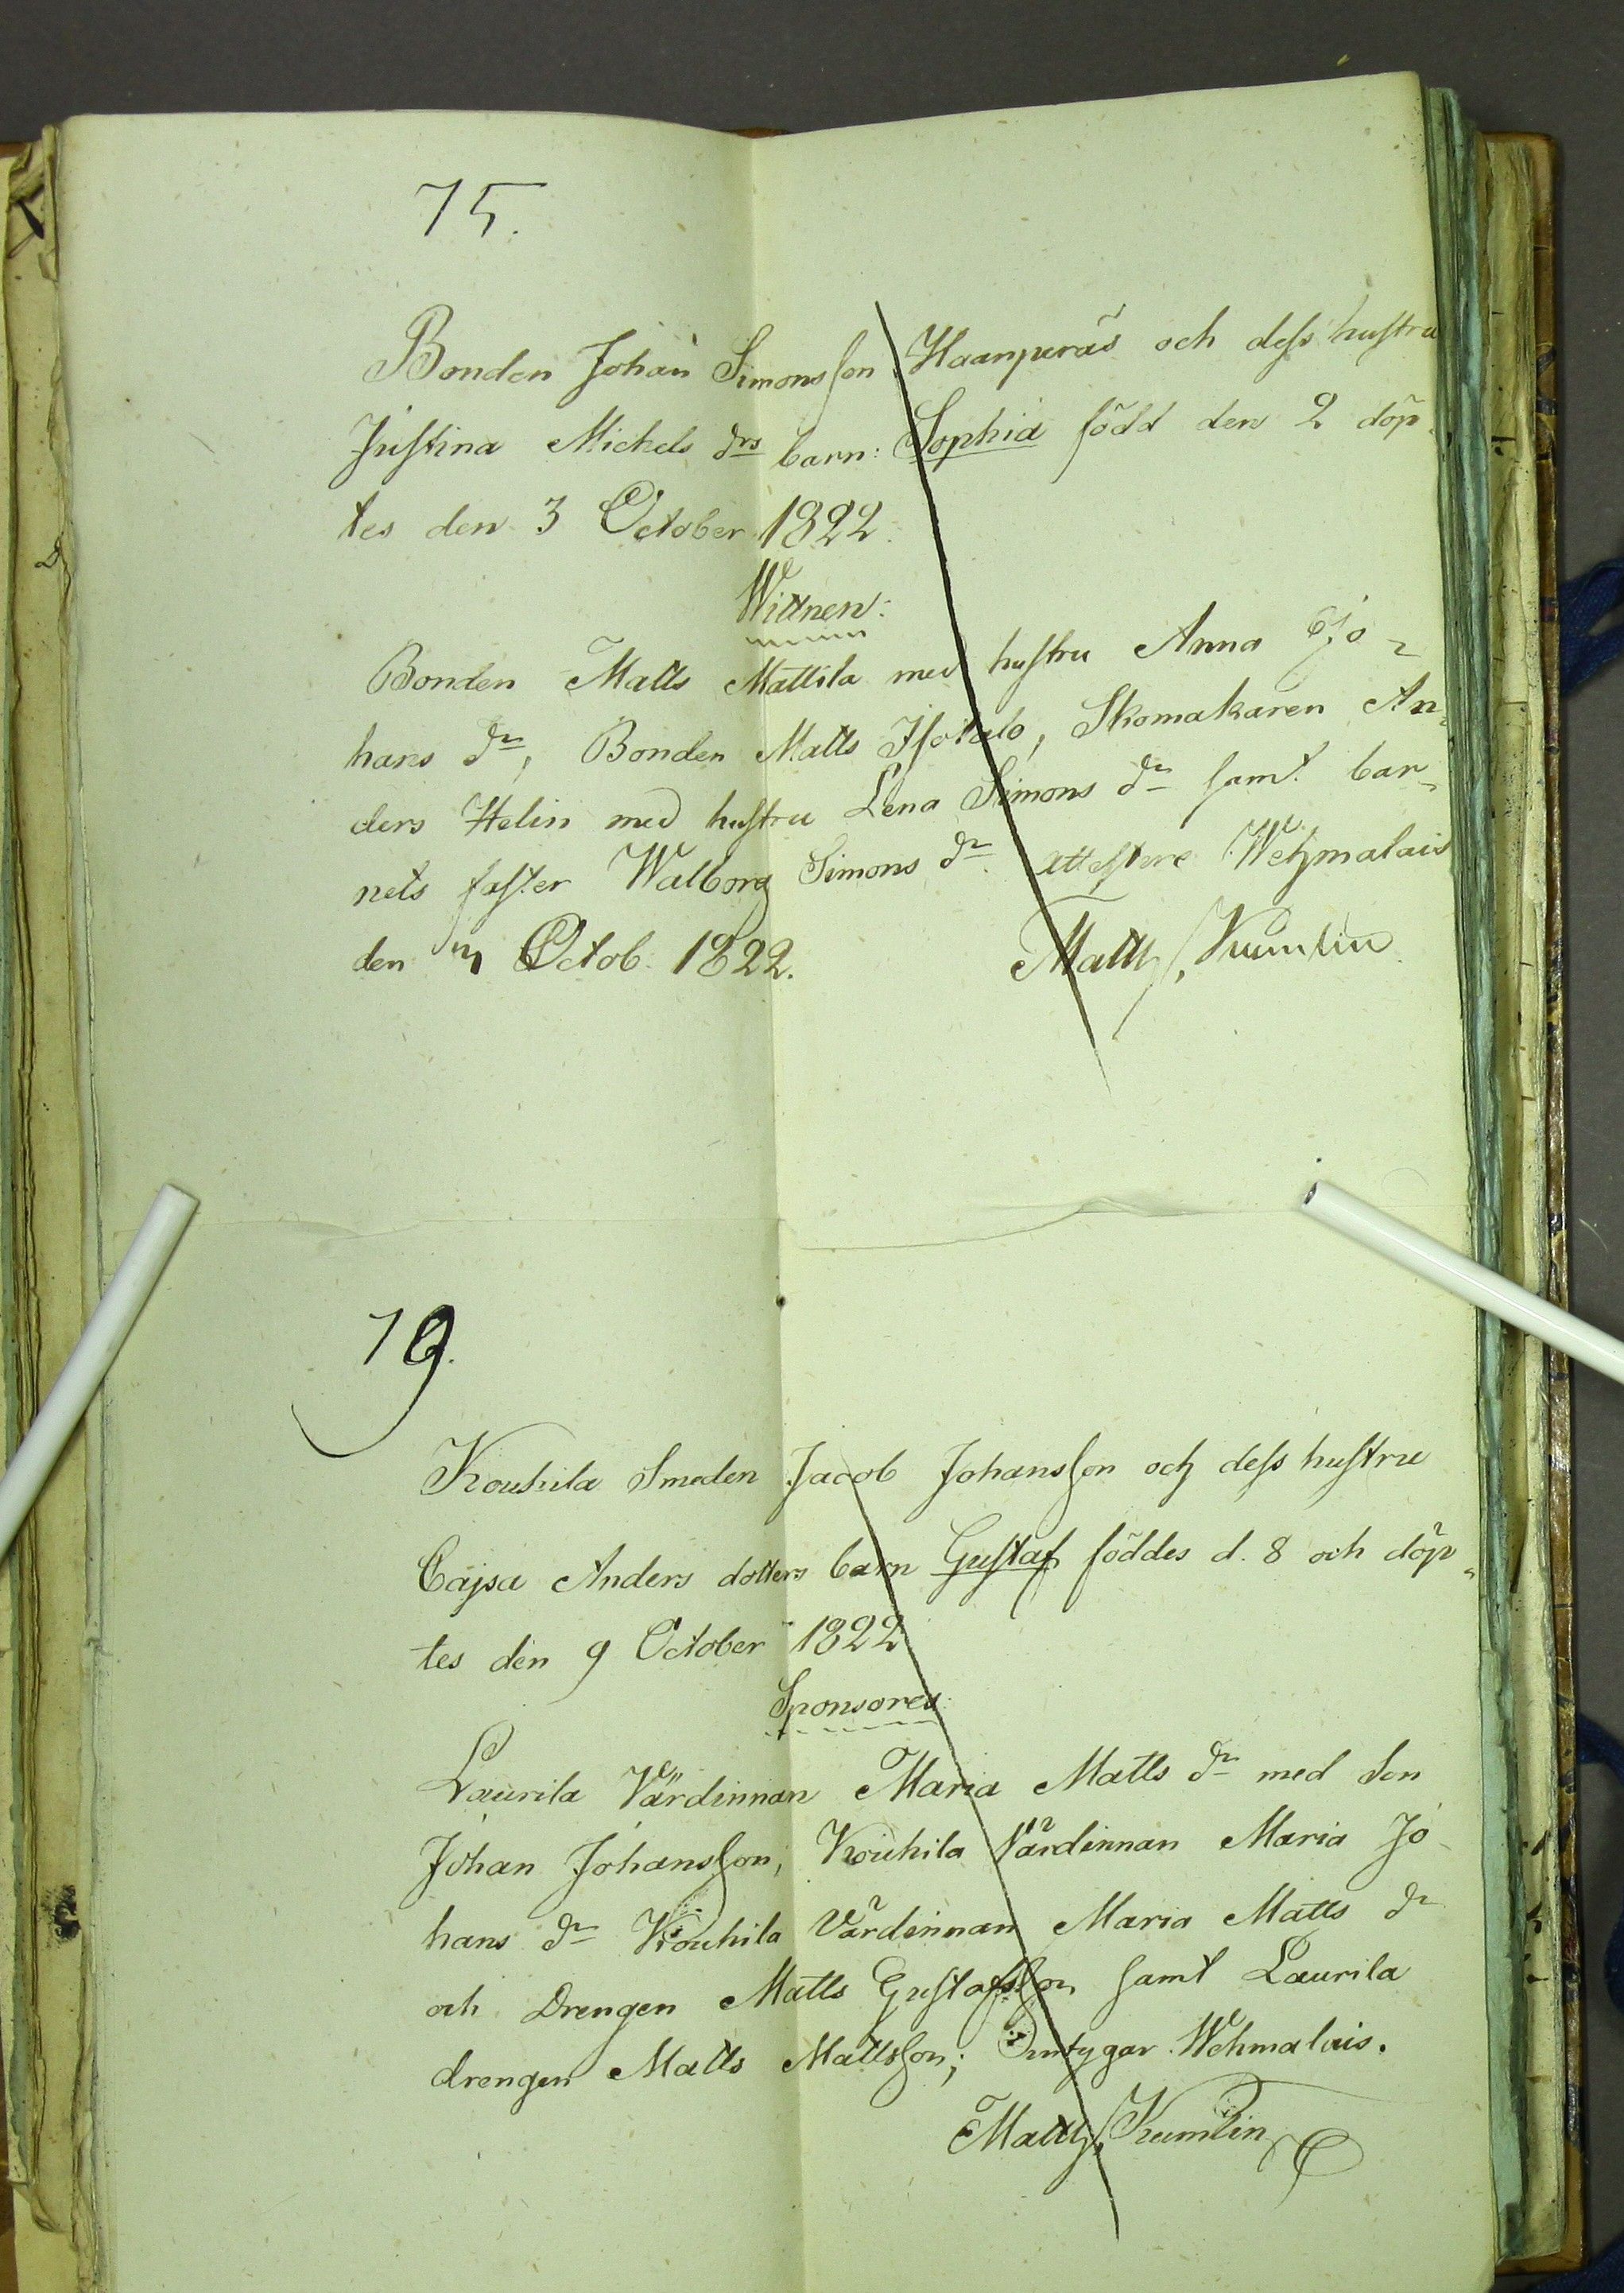 75.
Bonden Johan Simonsson Haanperäs och dess hustru
Justina Michels drs barn: Sophia född den 2 döp-
tes den 3 October 1822.
Wittnen:
Bonden Matts Mattila med hustru Anna Jo-
hans dr, Bonden Matts Isotalo, Skomakaren An-
ders Helin med hustru Lena Simons dr samt bar-
nets faster Walborg Simons dr attestere Wehmalais
den Octob. 1822. Matth, Kumlin
19.
Kouhila Smeden Jacob Johansson och dess hustru
Cajsa Anders dotters barn Gustaf föddes d. 8 och döp-
tes den 9 October 1822
Sponsores
Laurila Värdinnan Maria Matts dr med Son
Johan Johansson, Kouhila Värdinnan Maria Jo-
hans dr Kouhila Värdinnan Maria Matts dr
och Drengen Matts Gustafsson samt Laurila
drengen Matts Mattsson; Omtygar Wehmalais.
Matth, Kumlin